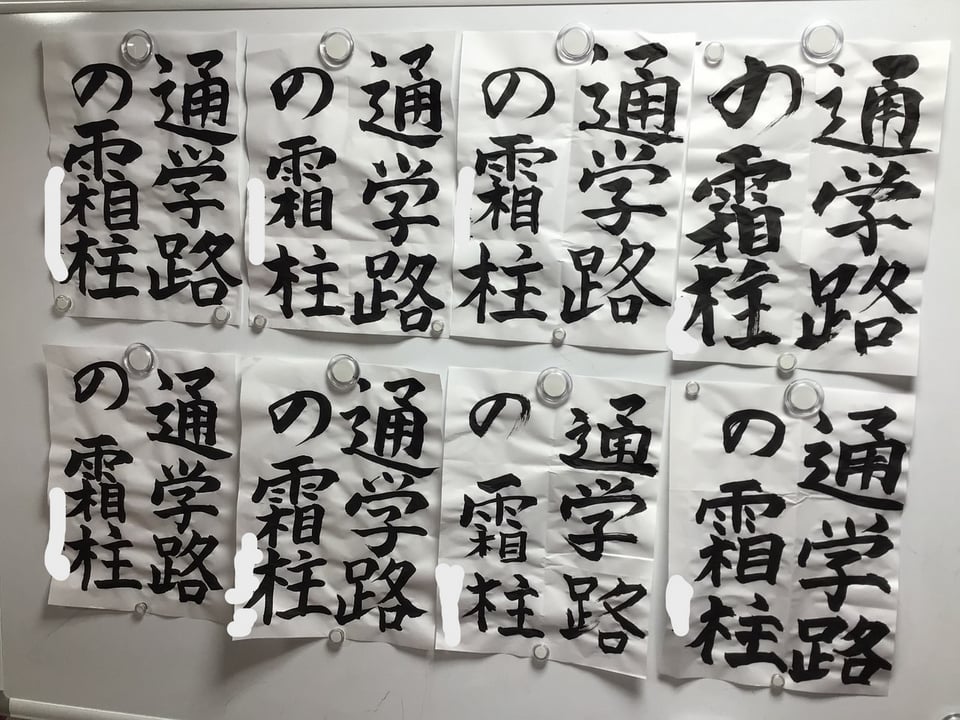 通学路
の霜柱
通学路
の霜柱
通学路
の霜柱
通学路
の霜柱
通学路
の霜柱
通学路
の霜柱
通学路
の霜柱
通学路
の霜柱